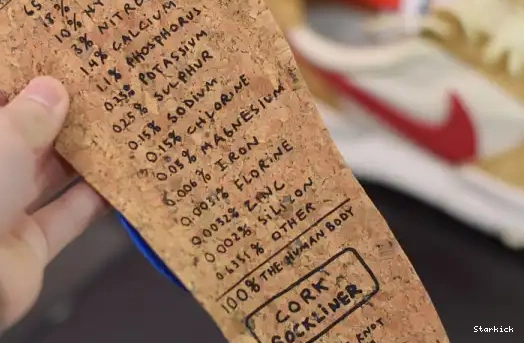 65
18%
10% HY
3% NITRO
1.4% CALCIUM
1.1% PHOSPHORUS
0.25% POTASSIUM
0.25% SULPHUR
0.15% SODIUM
0.15% CHLORINE
0.05% MAGNESIUM
0.006% IRON
0.0037% FLORINE
0.0032% ZINC
0.002% SILICON
0.6351% OTHER
100% THE HUMAN BODY
CORK
SOCKLINER
KNOT
Starkick